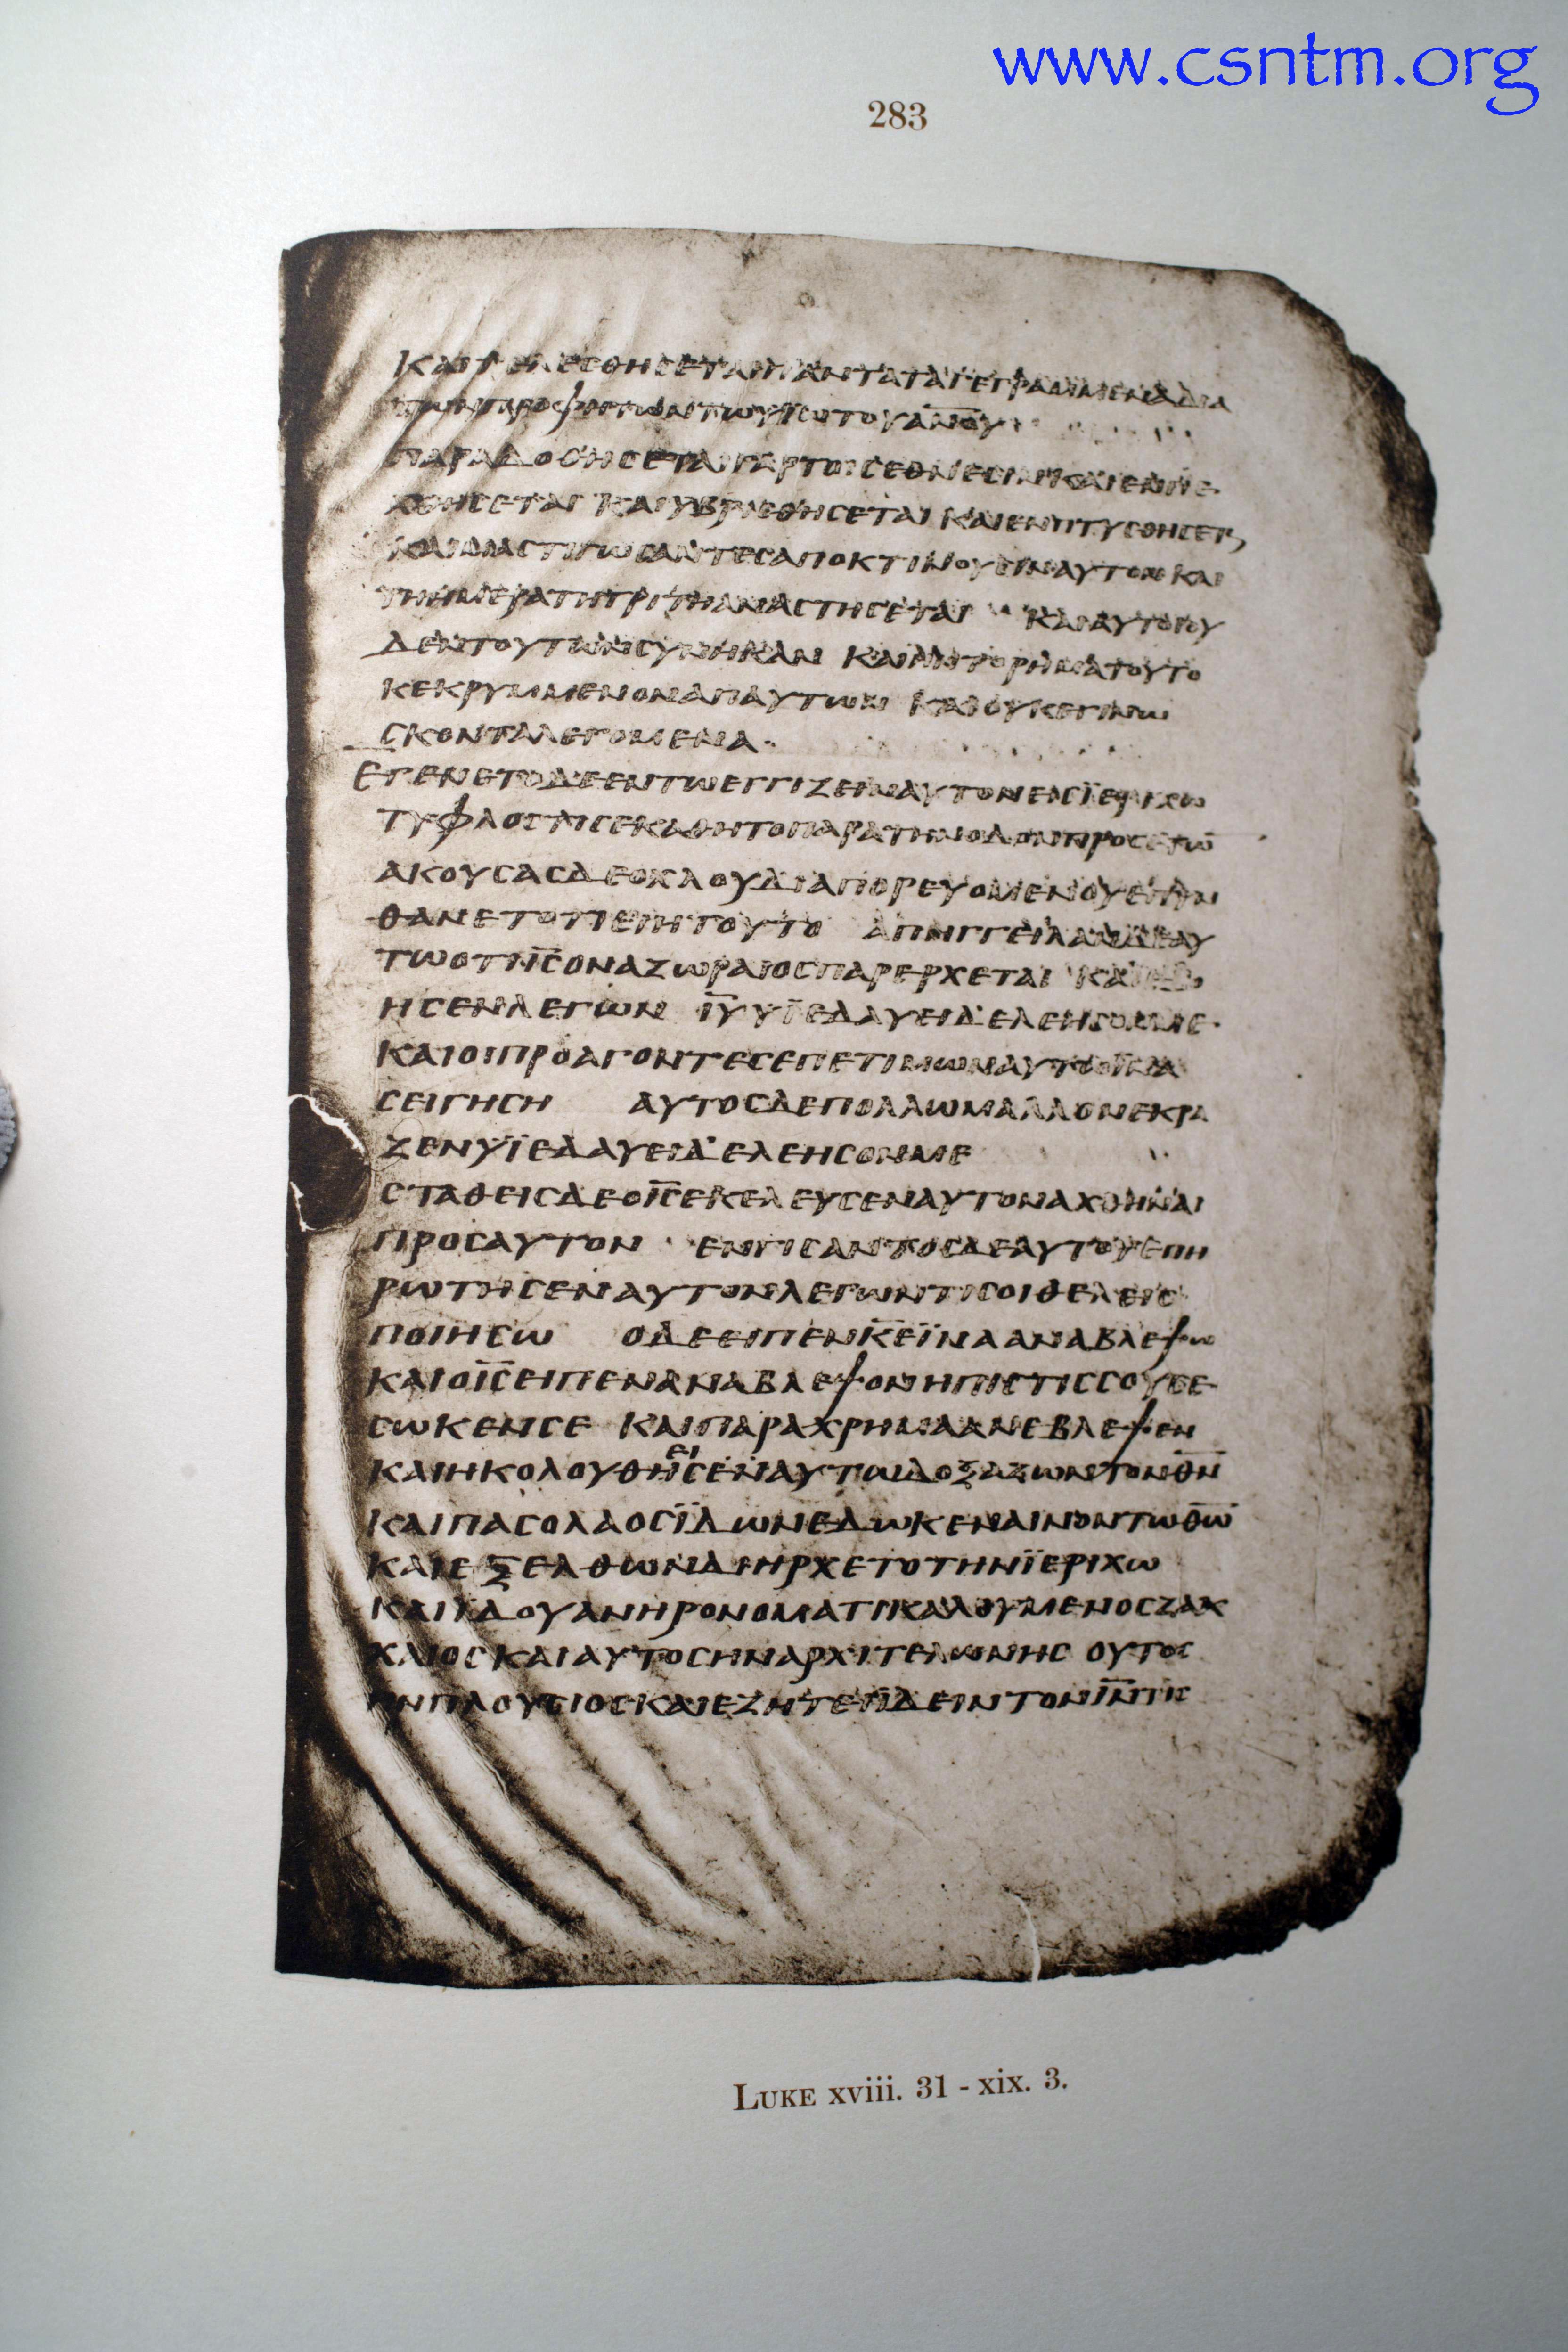 www.csntm.org
283
ΚΑΙΤΕΛΕΣΘΗΣΕΤΑΙΠΑΝΤΑΤΑΓΕΓΡΑΜΜΕΝΑΔΙΑ
ΤΩΝΠΡΟΦΗΤΩΝΤΩΥΙΩΤΟΥΑ̅Ν̅Ο̅Υ̅
ΠΑΡΑΔΟΘΗΣΕΤΑΙΓΑΡΤΟΙΣΕΘΝΕΣΙΝΚΑΙΕΝΠΕ
ΧΘΗΣΕΤΑΙ ΚΑΙΥΒΡΙΣΘΗΣΕΤΑΙ ΚΑΙΕΝΠΤΥΣΘΗΣΕΤ
ΚΑΙΜΑΣΤΙΓΩΣΑΝΤΕΣΑΠΟΚΤΙΝΟΥΣΙΝΑΥΤΟΝΚΑΙ
ΤΗΗΜΕΡΑΤΗΤΡΙΤΗΑΝΑΣΤΗΣΕΤΑΙ ΚΑΙΑΥΤΟΙΟΥ
ΔΕΝΤΟΥΤΩΝΣΥΝΗΚΑΝ ΚΑΙΗΝΤΟΡΗΜΑΤΟΥΤΟ
ΚΕΚΡΥΜΜΕΝΟΝΑΠΑΥΤΩΝ ΚΑΙΟΥΚΕΓΙΝΩ
ΣΚΟΝΤΑΛΕΓΟΜΕΝΑ·
ΕΓΕΝΕΤΟΔΕΕΝΤΩΕΓΓΙΖΕΙΝΑΥΤΟΝΕΙΣΪΕΡΙΧΩ
ΤΥΦΛΟΣΤΙΣΕΚΑΘΗΤΟΠΑΡΑΤΗΝΟΔΟΝΠΡΟΣΕΤΩ̅
ΑΚΟΥΣΑΣΔΕΟΧΛΟΥΔΙΑΠΟΡΕΥΟΜΕΝΟΥΕΠΥΝ
ΘΑΝΕΤΟΤΙΕΙΗΤΟΥΤΟ ΑΠΗΓΓΕΙΛΑΝΔΕΑΥ
ΤΩΟΤΙΙ̅Σ̅ΟΝΑΖΩΡΑΙΟΣΠΑΡΕΡΧΕΤΑΙ ΚΑΙΕΒΟ
ΗΣΕΝΛΕΓΩΝ Ι̅Υ̅ΥΪΕΔΑΥΕΙΔ᾽ΕΛΕΗΣΟΝΜΕ·
ΚΑΙΟΙΠΡΟΑΓΟΝΤΕΣΕΠΕΤΙΜΩΝΑΥΤΩΪΝΑ
ΣΕΙΓΗΣΗ ΑΥΤΟΣΔΕΠΟΛΛΩΜΑΛΛΟΝΕΚΡΑ
ΖΕΝΥΪΕΔΑΥΕΙΔ᾽ΕΛΕΗΣΟΝΜΕ
ΣΤΑΘΕΙΣΔΕΟΙ̅Σ̅ΕΚΕΛΕΥΣΕΝΑΥΤΟΝΑΧΘΗΝΑΙ
ΠΡΟΣΑΥΤΟΝ· ΕΝΓΙΣΑΝΤΟΣΔΕΑΥΤΟΥΕΠΗ
ΡΩΤΗΣΕΝΑΥΤΟΝΛΕΓΩΝΤΙΣΟΙΘΕΛΕΙΣ
ΠΟΙΗΣΩ ΟΔΕΕΙΠΕΝΚ̅Ε̅ΪΝΑΑΝΑΒΛΕΨΩ
ΚΑΙΟΙ̅Σ̅ΕΙΠΕΝΑΝΑΒΛΕΨΟΝΗΠΙΣΤΙΣΣΟΥΣΕ
ΣΩΚΕΝΣΕ ΚΑΙΠΑΡΑΧΡΗΜΑΑΝΕΒΛΕΨΕΝ
ΚΑΙΗΚΟΛΟΥΘΗΣΕΝΑΥΤΩΔΟΞΑΖΩΝΤΟΝΘ̅Ν̅
ΚΑΙΠΑΣΟΛΑΟΣΪΔΩΝΕΔΩΚΕΝΑΙΝΟΝΤΩΘ̅Ω̅
ΚΑΙΕΞΕΛΘΩΝΔΙΗΡΧΕΤΟΤΗΝΪΕΡΙΧΩ
ΚΑΙΪΔΟΥΑΝΗΡΟΝΟΜΑΤΙΚΑΛΟΥΜΕΝΟΣΖΑΚ
ΧΑΙΟΣΚΑΙΑΥΤΟΣΗΝΑΡΧΙΤΕΛΩΝΗΣ ΟΥΤΟΣ
ΗΝΠΛΟΥΣΙΟΣΚΑΙΕΖΗΤΕΙΪΔΕΙΝΤΟΝΙ̅Ν̅ΤΙΣ
LUKE xviii. 31 - xix. 3.